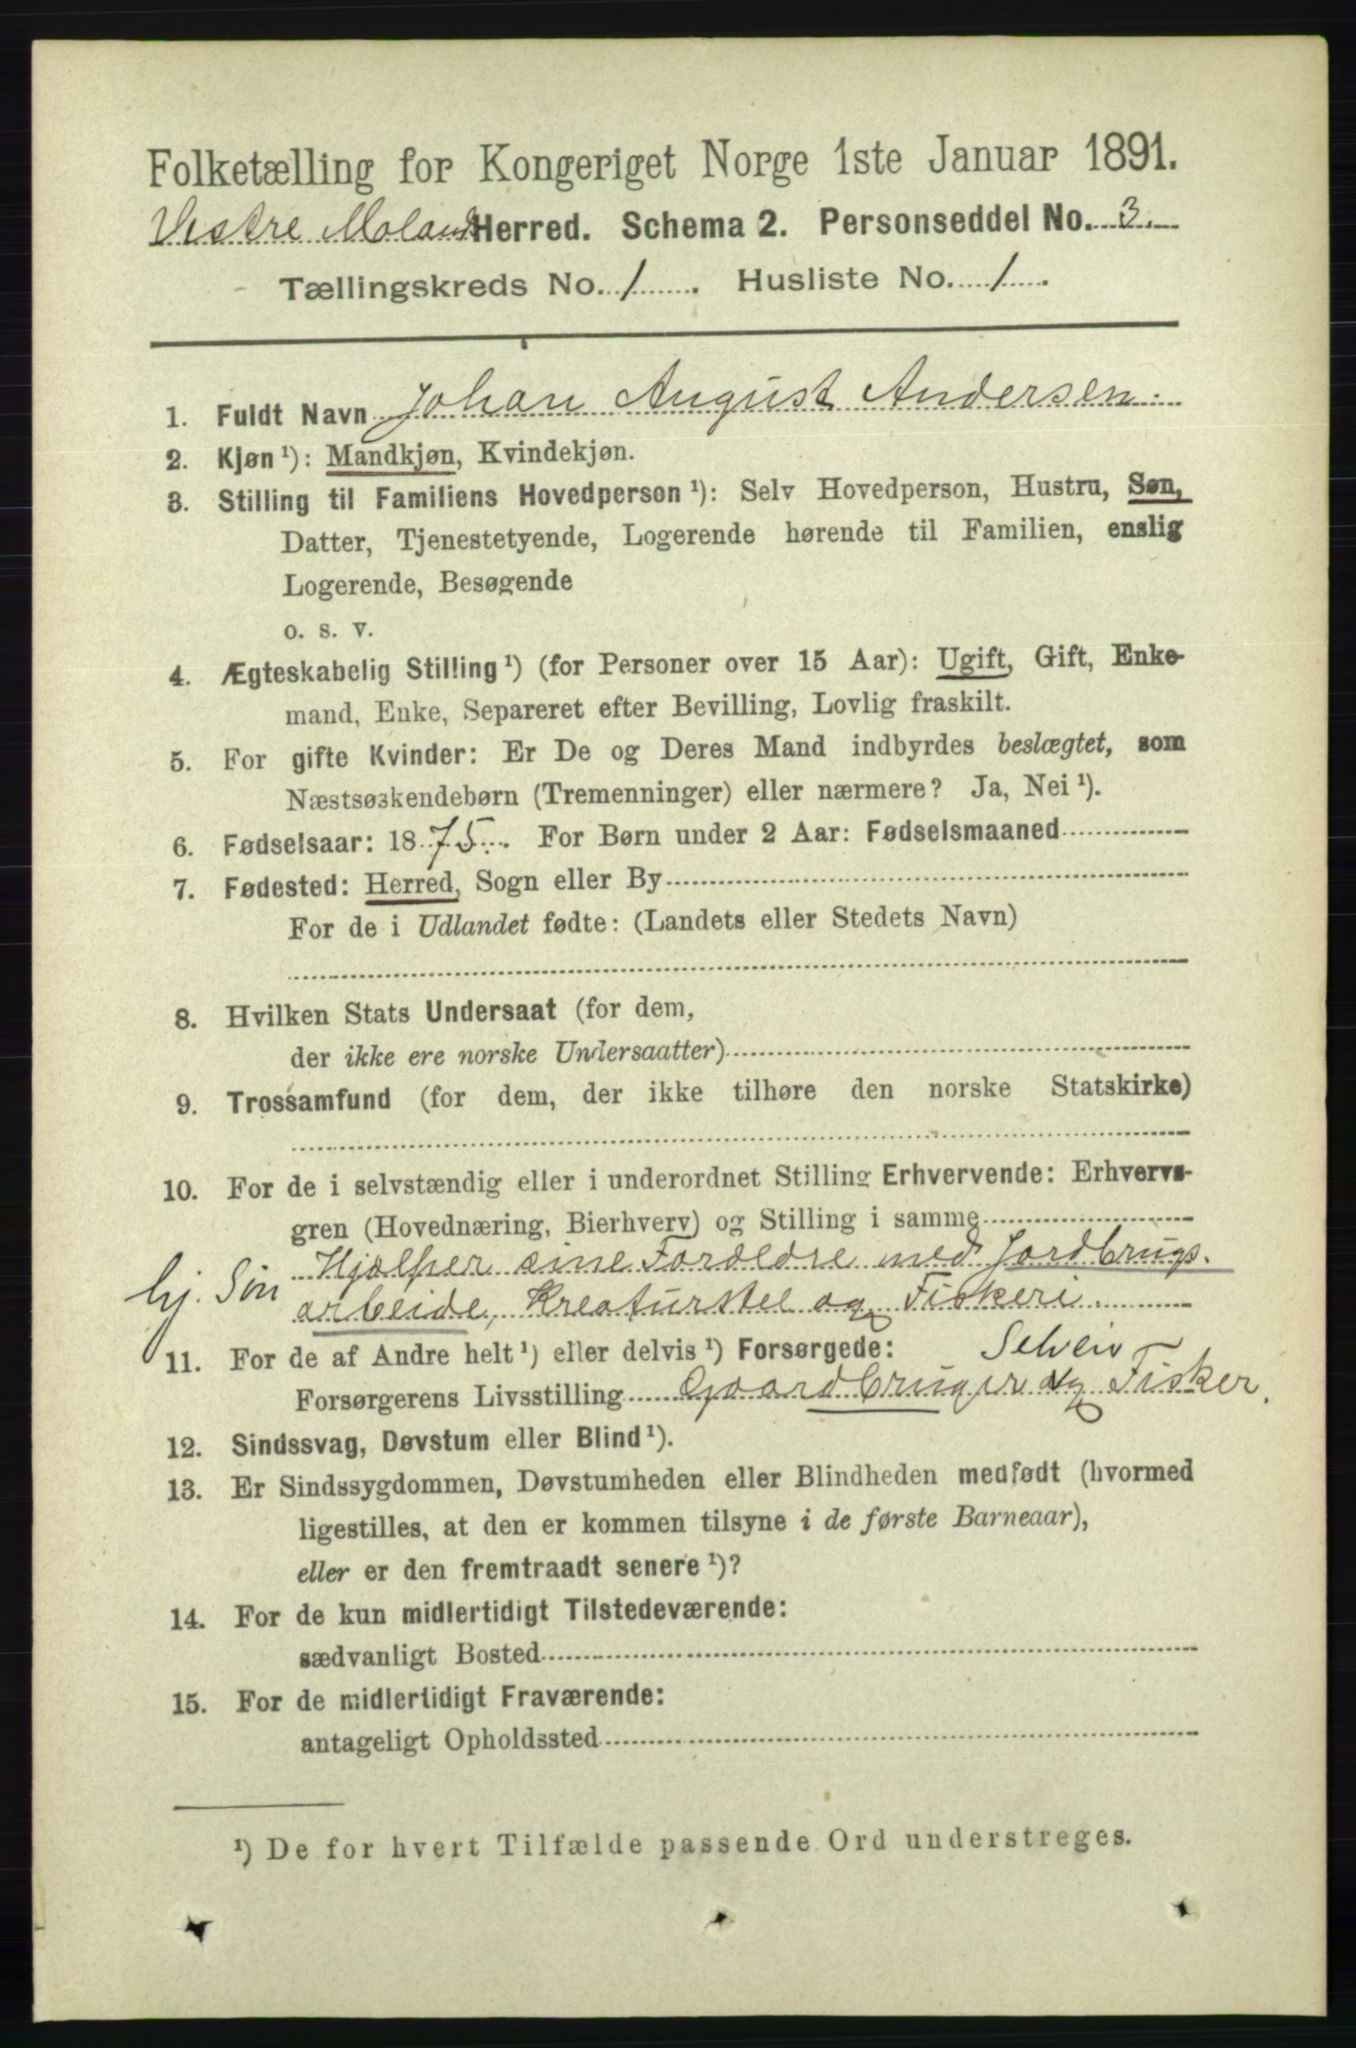 Folketælling for Kongeriget Norge 1ste Januar 1891.
Vestre Moland Herred. Schema 2. Personseddel No. 3.
Tællingskreds No. 1. Husliste No. 1.
1. Fuldt Navn Johan August Andersen.
2. Kjøn ¹): Mandkjøn, Kvindekjøn.
3. Stilling til Familiens Hovedperson ¹): Selv Hovedperson, Hustru, Søn,
Datter, Tjenestetyende, Logerende hørende til Familien, enslig
Logerende, Besøgende
o. s. v.
4. Ægteskabelig Stilling ¹) (for Personer over 15 Aar): Ugift, Gift, Enke-
mand, Enke, Separeret efter Bevilling, Lovlig fraskilt.
5. For gifte Kvinder: Er De og Deres Mand indbyrdes beslægtet, som
Næstsøskendebørn (Tremenninger) eller nærmere? Ja, Nei ¹).
6. Fødselsaar: 1875. For Børn under 2 Aar: Fødselsmaaned
7. Fødested: Herred, Sogn eller By
For de i Udlandet fødte: (Landets eller Stedets Navn)
8. Hvilken Stats Undersaat (for dem,
der ikke ere norske Undersaatter)
9. Trossamfund (for dem, der ikke tilhøre den norske Statskirke)
10. For de i selvstændig eller i underordnet Stilling Erhvervende: Erhvervs-
gren (Hovednæring, Bierhverv) og Stilling i samme
Hjælper sine Forældre med Jordbrugs.
hj. Søn arbeide, Kreaturstel og Fiskeri.
11. For de af Andre helt ¹) eller delvis ¹) Forsørgede: Selveier
Forsørgerens Livsstilling Gaardbruger og Fisker.
12. Sindssvag, Døvstum eller Blind ¹).
13. Er Sindssygdommen, Døvstumheden eller Blindheden medfødt (hvormed
ligestilles, at den er kommen tilsyne i de første Barneaar),
eller er den fremtraadt senere ¹)?
14. For de kun midlertidigt Tilstedeværende:
sædvanligt Bosted
15. For de midlertidigt Fraværende:
antageligt Opholdssted
¹) De for hvert Tilfælde passende Ord understreges.